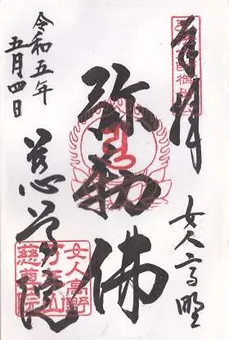 奉拝
女人高野
弥勒佛
令和五年
五月四日
慈尊院
女人高野
万年山
慈尊院